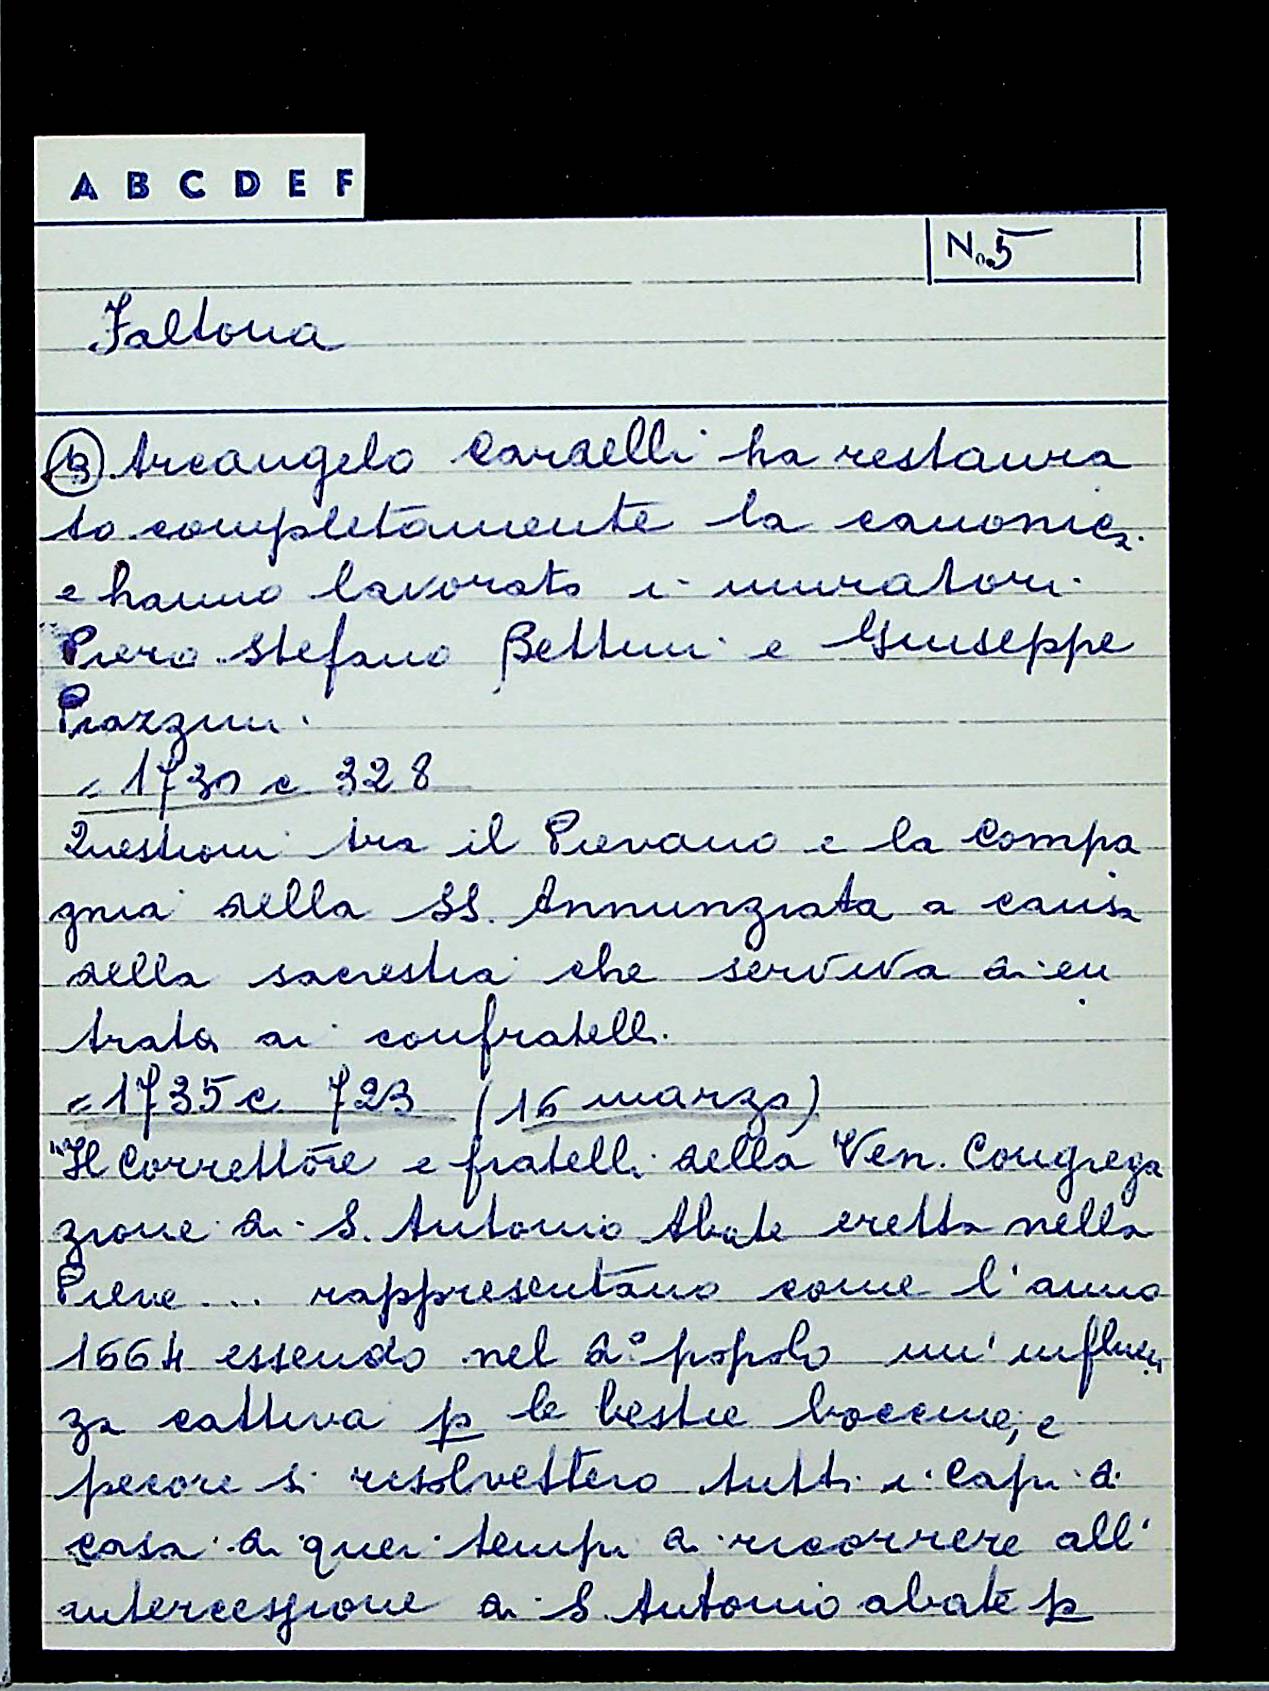 A B C D E F
N. 5
Faltona
Arcangelo Cardelli ha restaura
to completamente la canonica
e hanno lavorato i muratori
Piero Stefano Bettini e Giuseppe
Piazzini.
= 1730 c 328
Questioni tra il Pievano e la Compa
gnia della SS. Annunziata a causa
della sacrestia che serviva di en
trata ai confratelli.
= 1735 c. 723 (16 marzo)
"Il Correttore e fratelli della Ven. Congrega
zione di S. Antonio Abate eretta nella
Pieve... rappresentano come l'anno
1664 essendo nel d.° popolo un'influen
za cattiva p le bestie boccine, e
pecore si risolvettero tutti i Capi di
casa di quei tempi di ricorrere all'
intercessione di S. Antonio abate p